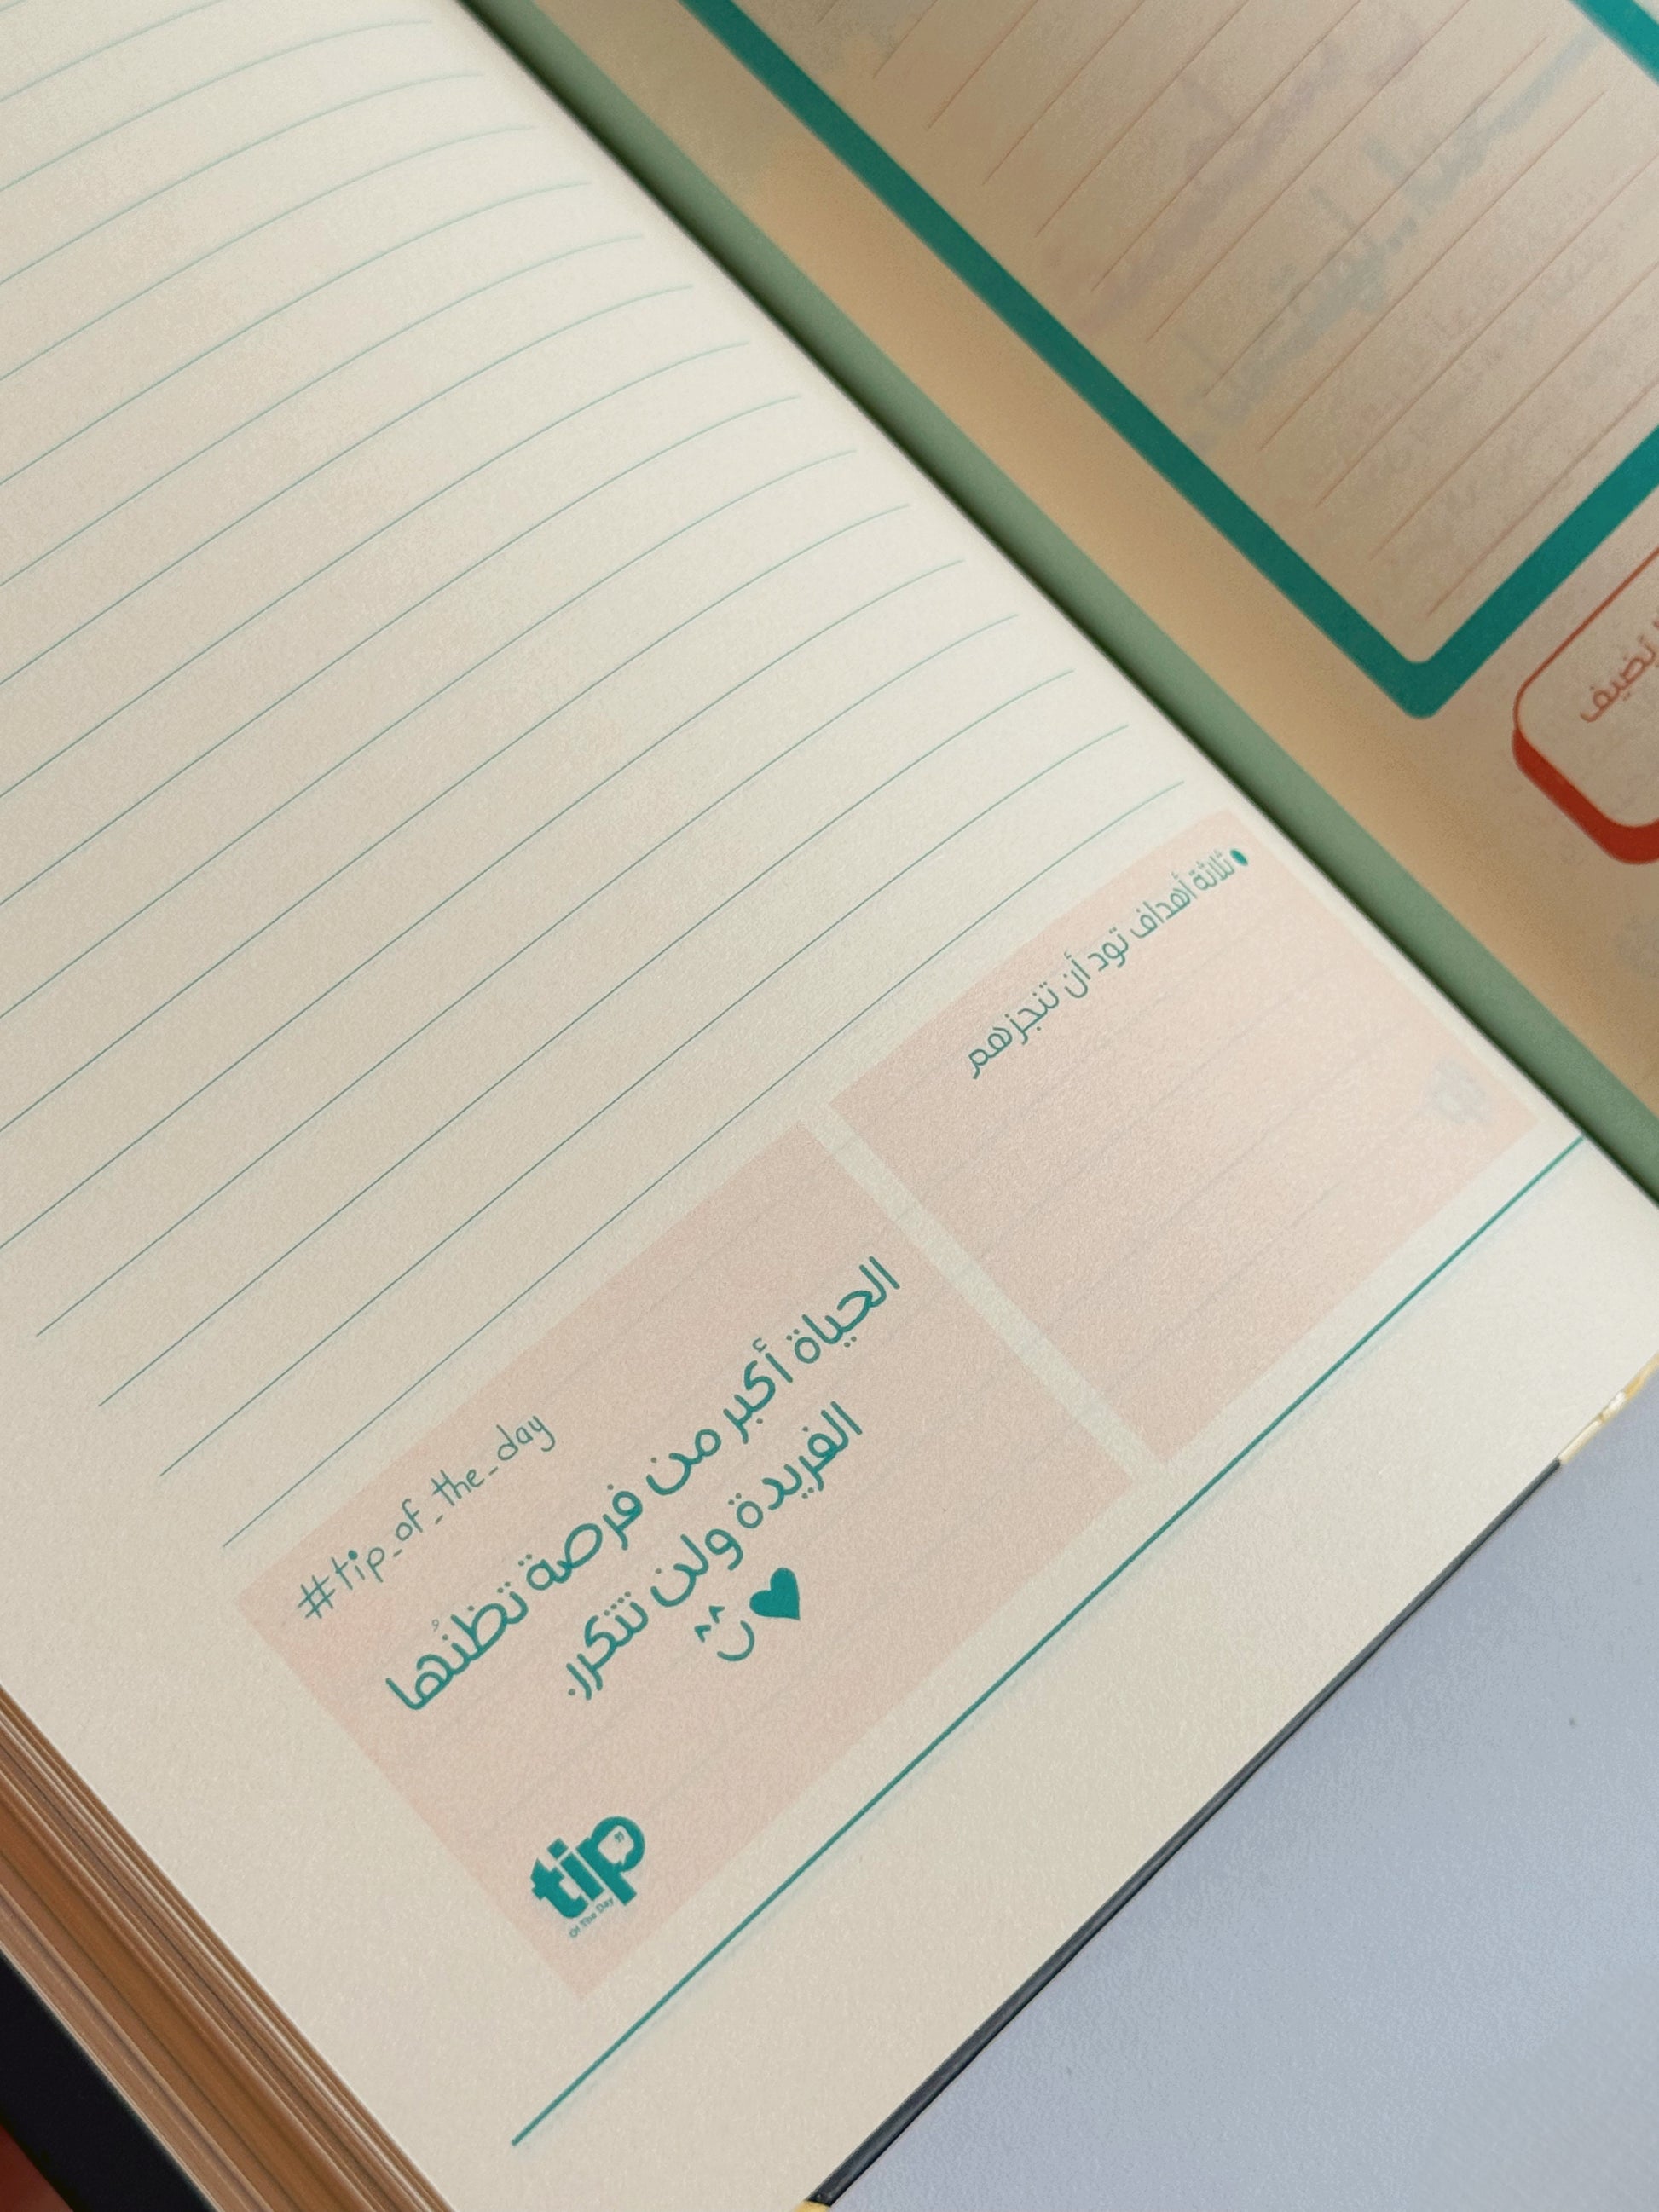 ثلاثة أهداف تود أن تنجزهم
#tip_of_the_day
الحياة أكبر من فرصة تظنُها
الفريدة ولن تتكرر.
tip
Of The Day
تُضيف